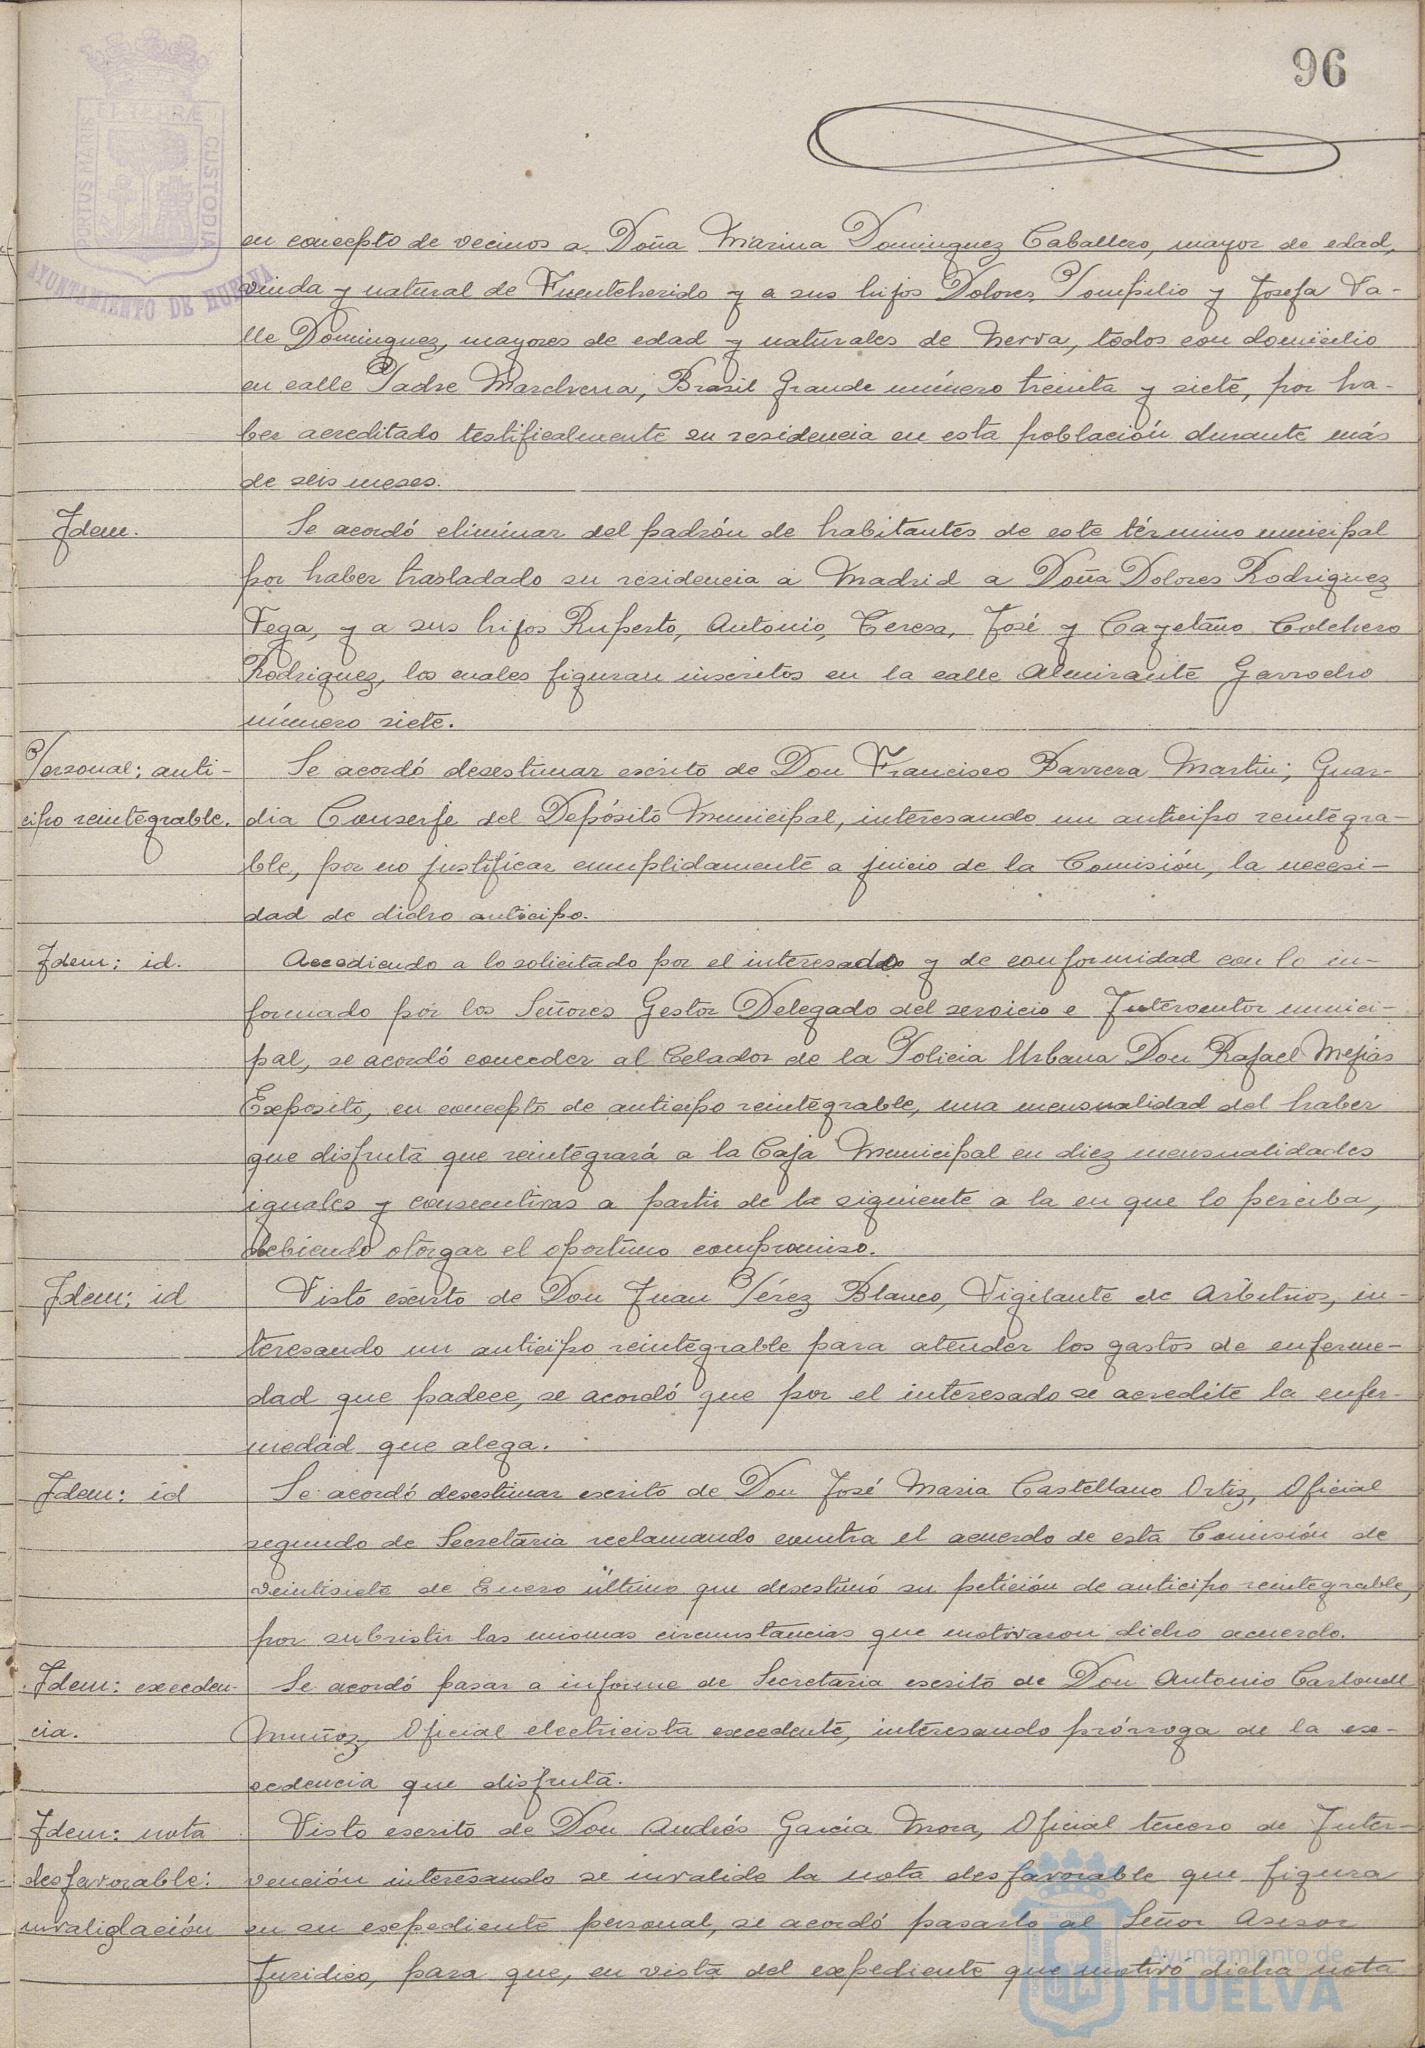 96
PORTUS MARIS ET TERRAE CUSTODIA
AYUNTAMIENTO DE HUELVA
en concepto de vecinos a Doña Marina Dominguez Caballero, mayor de edad,
viuda y natural de Fuenteherido y a sus hijos Dolores, Pompilio y Josefa Va-
lle Dominguez, mayores de edad y naturales de Nerva, todos con domicilio
en calle Padre Marchena, Brasil Grande número treinta y siete, por ha-
ber acreditado testificalmente su residencia en esta población durante más
de seis meses.
Idem. Se acordó eliminar del padrón de habitantes de este término municipal
por haber trasladado su residencia a Madrid a Doña Dolores Rodriguez
Vega, y a sus hijos Ruperto, Antonio, Teresa, José y Cayetano Colchero
Rodriguez, los cuales figuran inscritos en la calle Almirante Garrocho
número siete.
Personal: anti- Se acordó desestimar escrito de Don Francisco Barrera Martin; Guar-
cipo reintegrable. dia Conserje del Depósito Municipal, interesando un anticipo reintegra-
ble, por no justificar cumplidamente a juicio de la Comisión, la necesi-
dad de dicho anticipo.
Idem: id. Accediendo a lo solicitado por el interesado y de conformidad con lo in-
formado por los Señores Gestor Delegado del servicio e Interventor munici-
pal, se acordó conceder al Celador de la Policia Urbana Don Rafael Mejias
Exposito, en concepto de anticipo reintegrable, una mensualidad del haber
que disfruta que reintegrará a la Caja Municipal en diez mensualidades
iguales y consecutivas a partir de la siguiente a la en que lo perciba,
debiendo otorgar el oportuno compromiso.
Idem: id Visto escrito de Don Juan Pérez Blanco, Vigilante de Arbitrios, in-
teresando un anticipo reintegrable para atender los gastos de enferme-
dad que padece, se acordó que por el interesado se acredite la enfer-
medad que alega.
Idem: id Se acordó desestimar escrito de Don José Maria Castellano Ortiz, Oficial
segundo de Secretaria reclamando contra el acuerdo de esta Comisión de
veintisiete de Enero último que desestimó su petición de anticipo reintegrable,
por subsistir las mismas circunstancias que motivaron dicho acuerdo.
Idem: exceden- Se acordó pasar a informe de Secretaria escrito de Don Antonio Carbonell
cia. Muñoz, Oficial electricista excedente, interesando prórroga de la ex-
cedencia que disfruta.
Idem: nota Visto escrito de Don Andrés Garcia Mora, Oficial tercero de Inter-
desfavorable: vención interesando se invalide la nota desfavorable que figura
invalidación en su expediente personal, se acordó pasarlo al Señor Asesor
Juridico, para que, en vista del expediente que motivó dicha nota
Ayuntamiento de
HUELVA